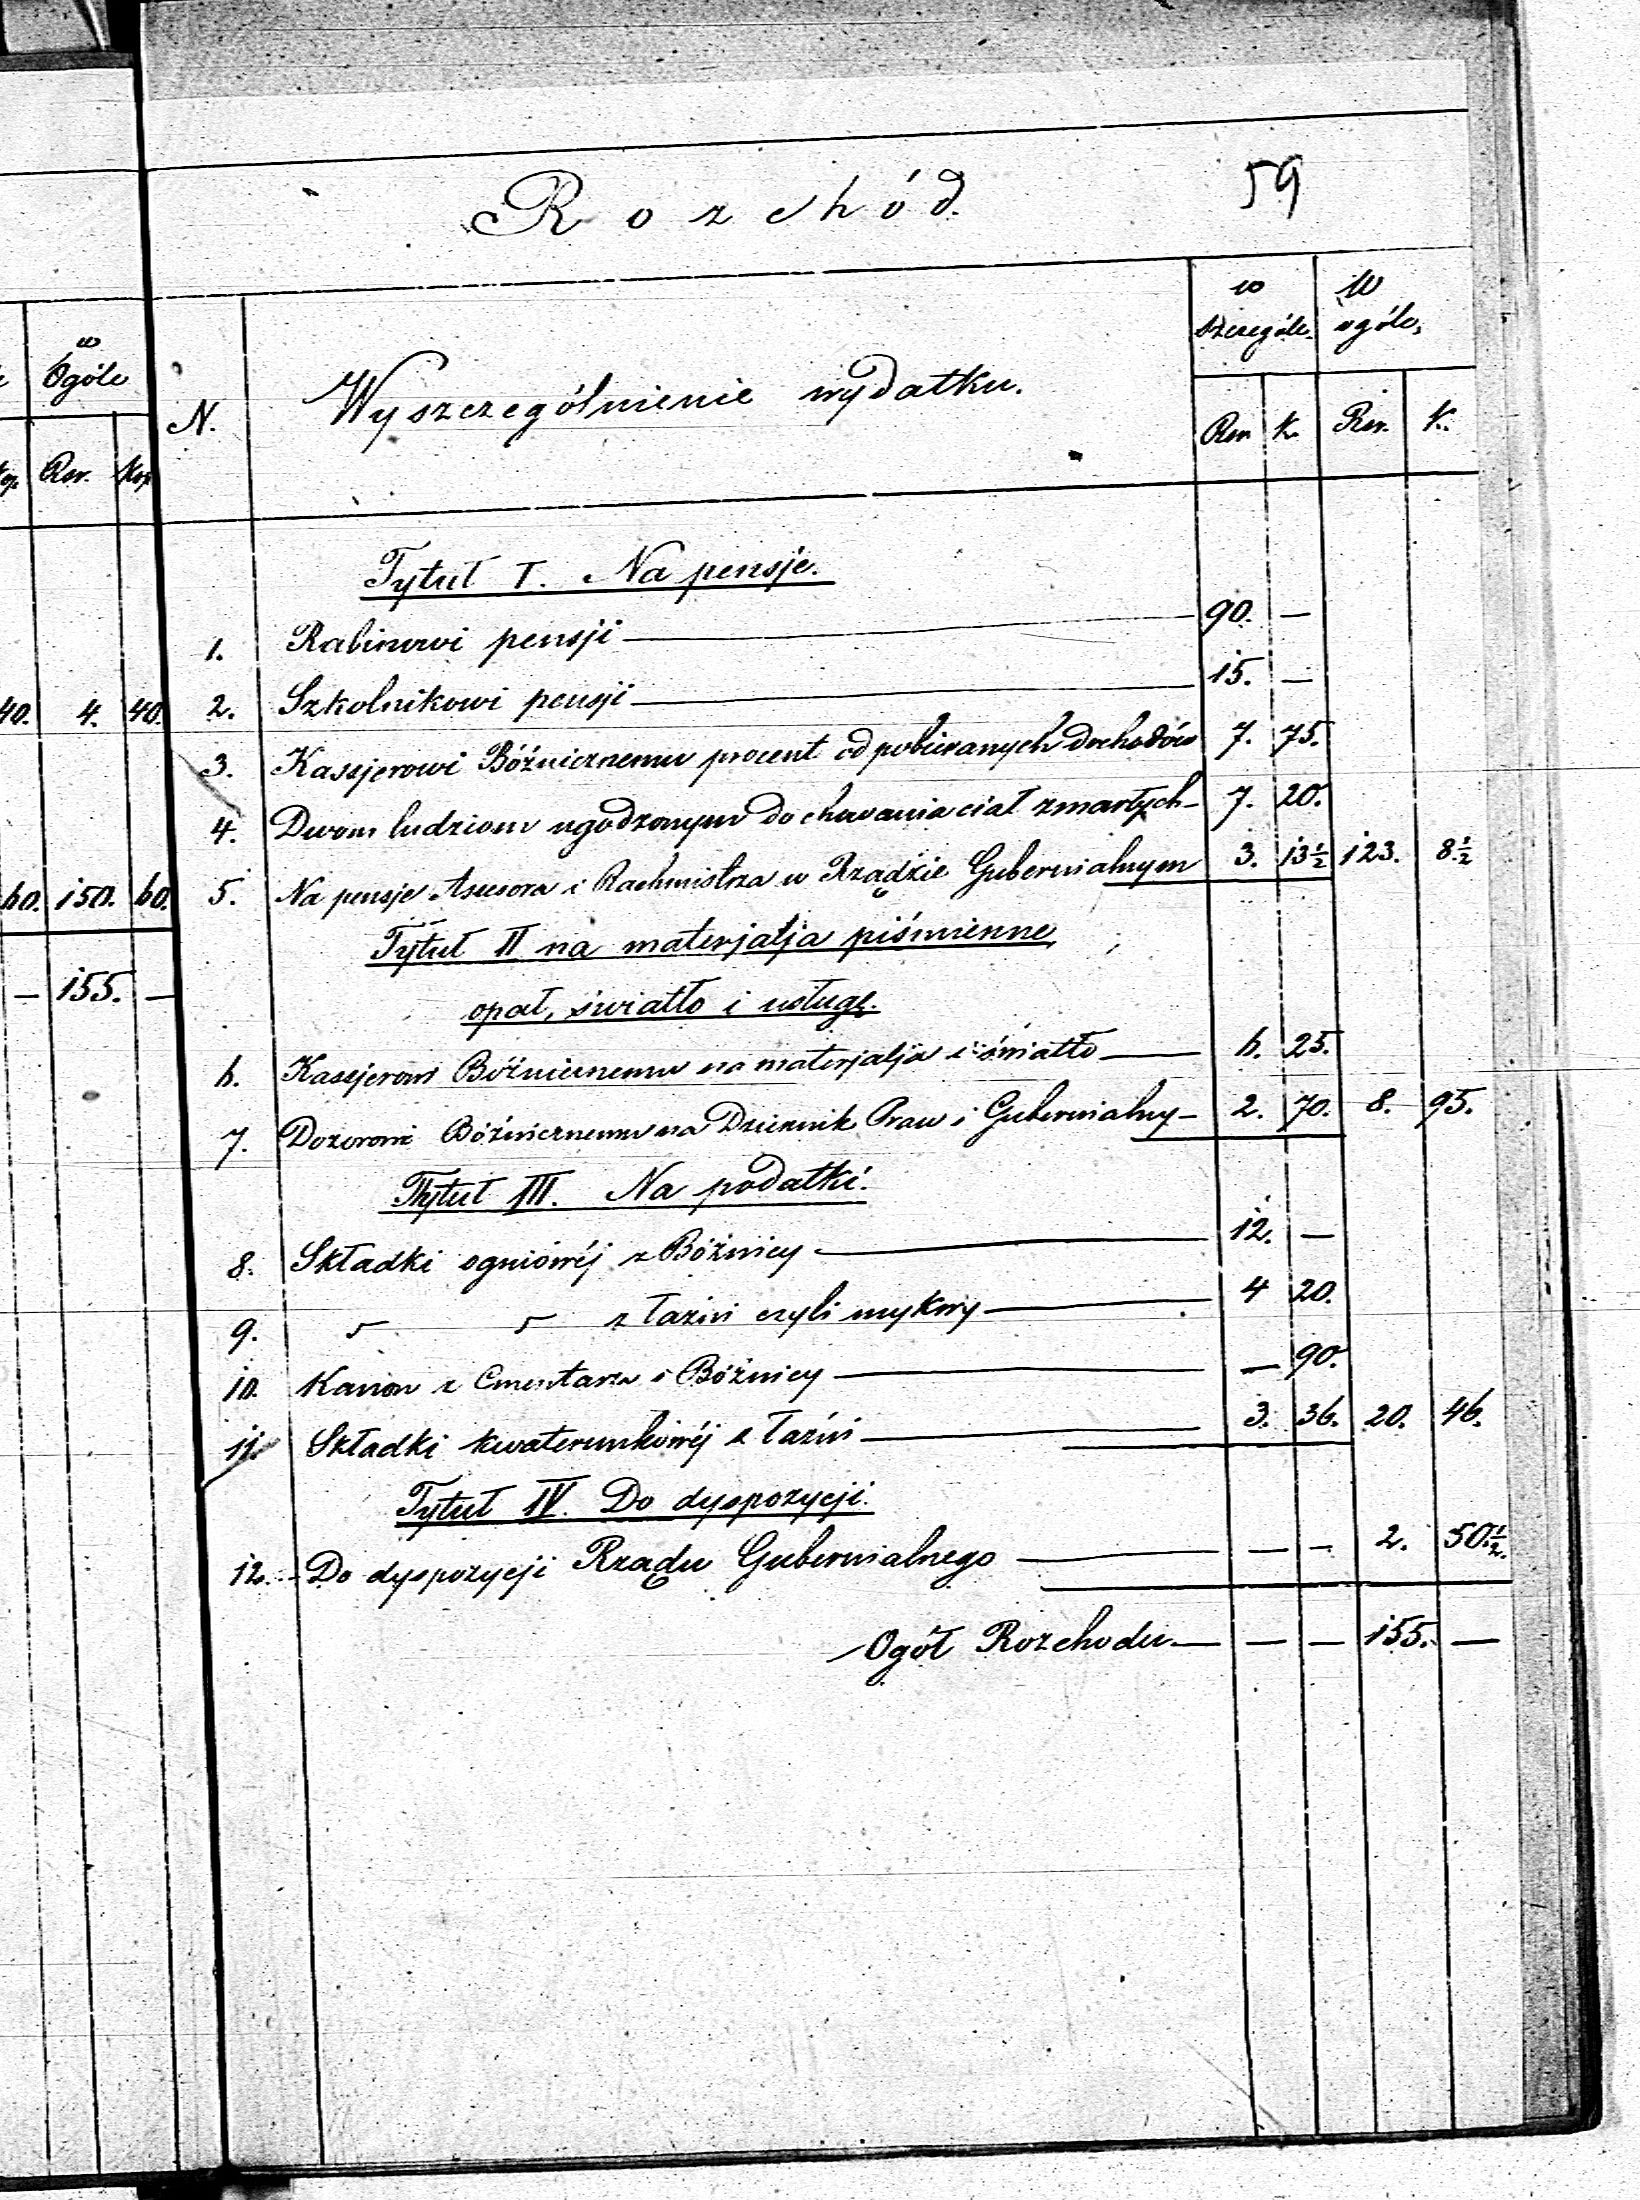 59
Rozchód.
N. Wyszczególnienie wydatku. w szczególe. W ogóle,
Rsr. K. Rsr. K.
Tytuł I. Na pensje.
1. Rabinowi pensji — 90. —
2. Szkolnikowi pensji — 15. —
3. Kassjerowi Bóżnicznemu procent od pobieranych dochodów 7. 75.
4. Dwom ludziom ugodzonym do chowania ciał zmarłych — 7. 20.
5. Na pensje Assesora i Rachmistrza w Rządzie Gubernialnym 3. 13½ 123. 8½
Tytuł II na materjalja piśmienne,
opał, światło i usługę.
6. Kassjerowi Bóżnicznemu na materjalja i światło — 6. 25.
7. Dozorowi Bóżnicznemu na Dziennik Praw i Gubernialny — 2. 70. 8. 95.
Tytuł III. Na podatki.
8. Składki ogniowéj z Bóżnicy — 12. —
9. " " z łaźni czyli mykwy — 4 20.
10. Kanon z Cmentarza i Bóżnicy — — 90.
11. Składki kwaterunkowéj z łaźni — 3. 36. 20. 46.
Tytuł IV. Do dyspozycji.
12. Do dyspozycji Rządu Gubernialnego — — — 2. 50½.
Ogół Rozchodu — — — 155. —
w
Ogóle
Rsr. Kop
40. 4. 40.
60. 150. 60.
— 155. —